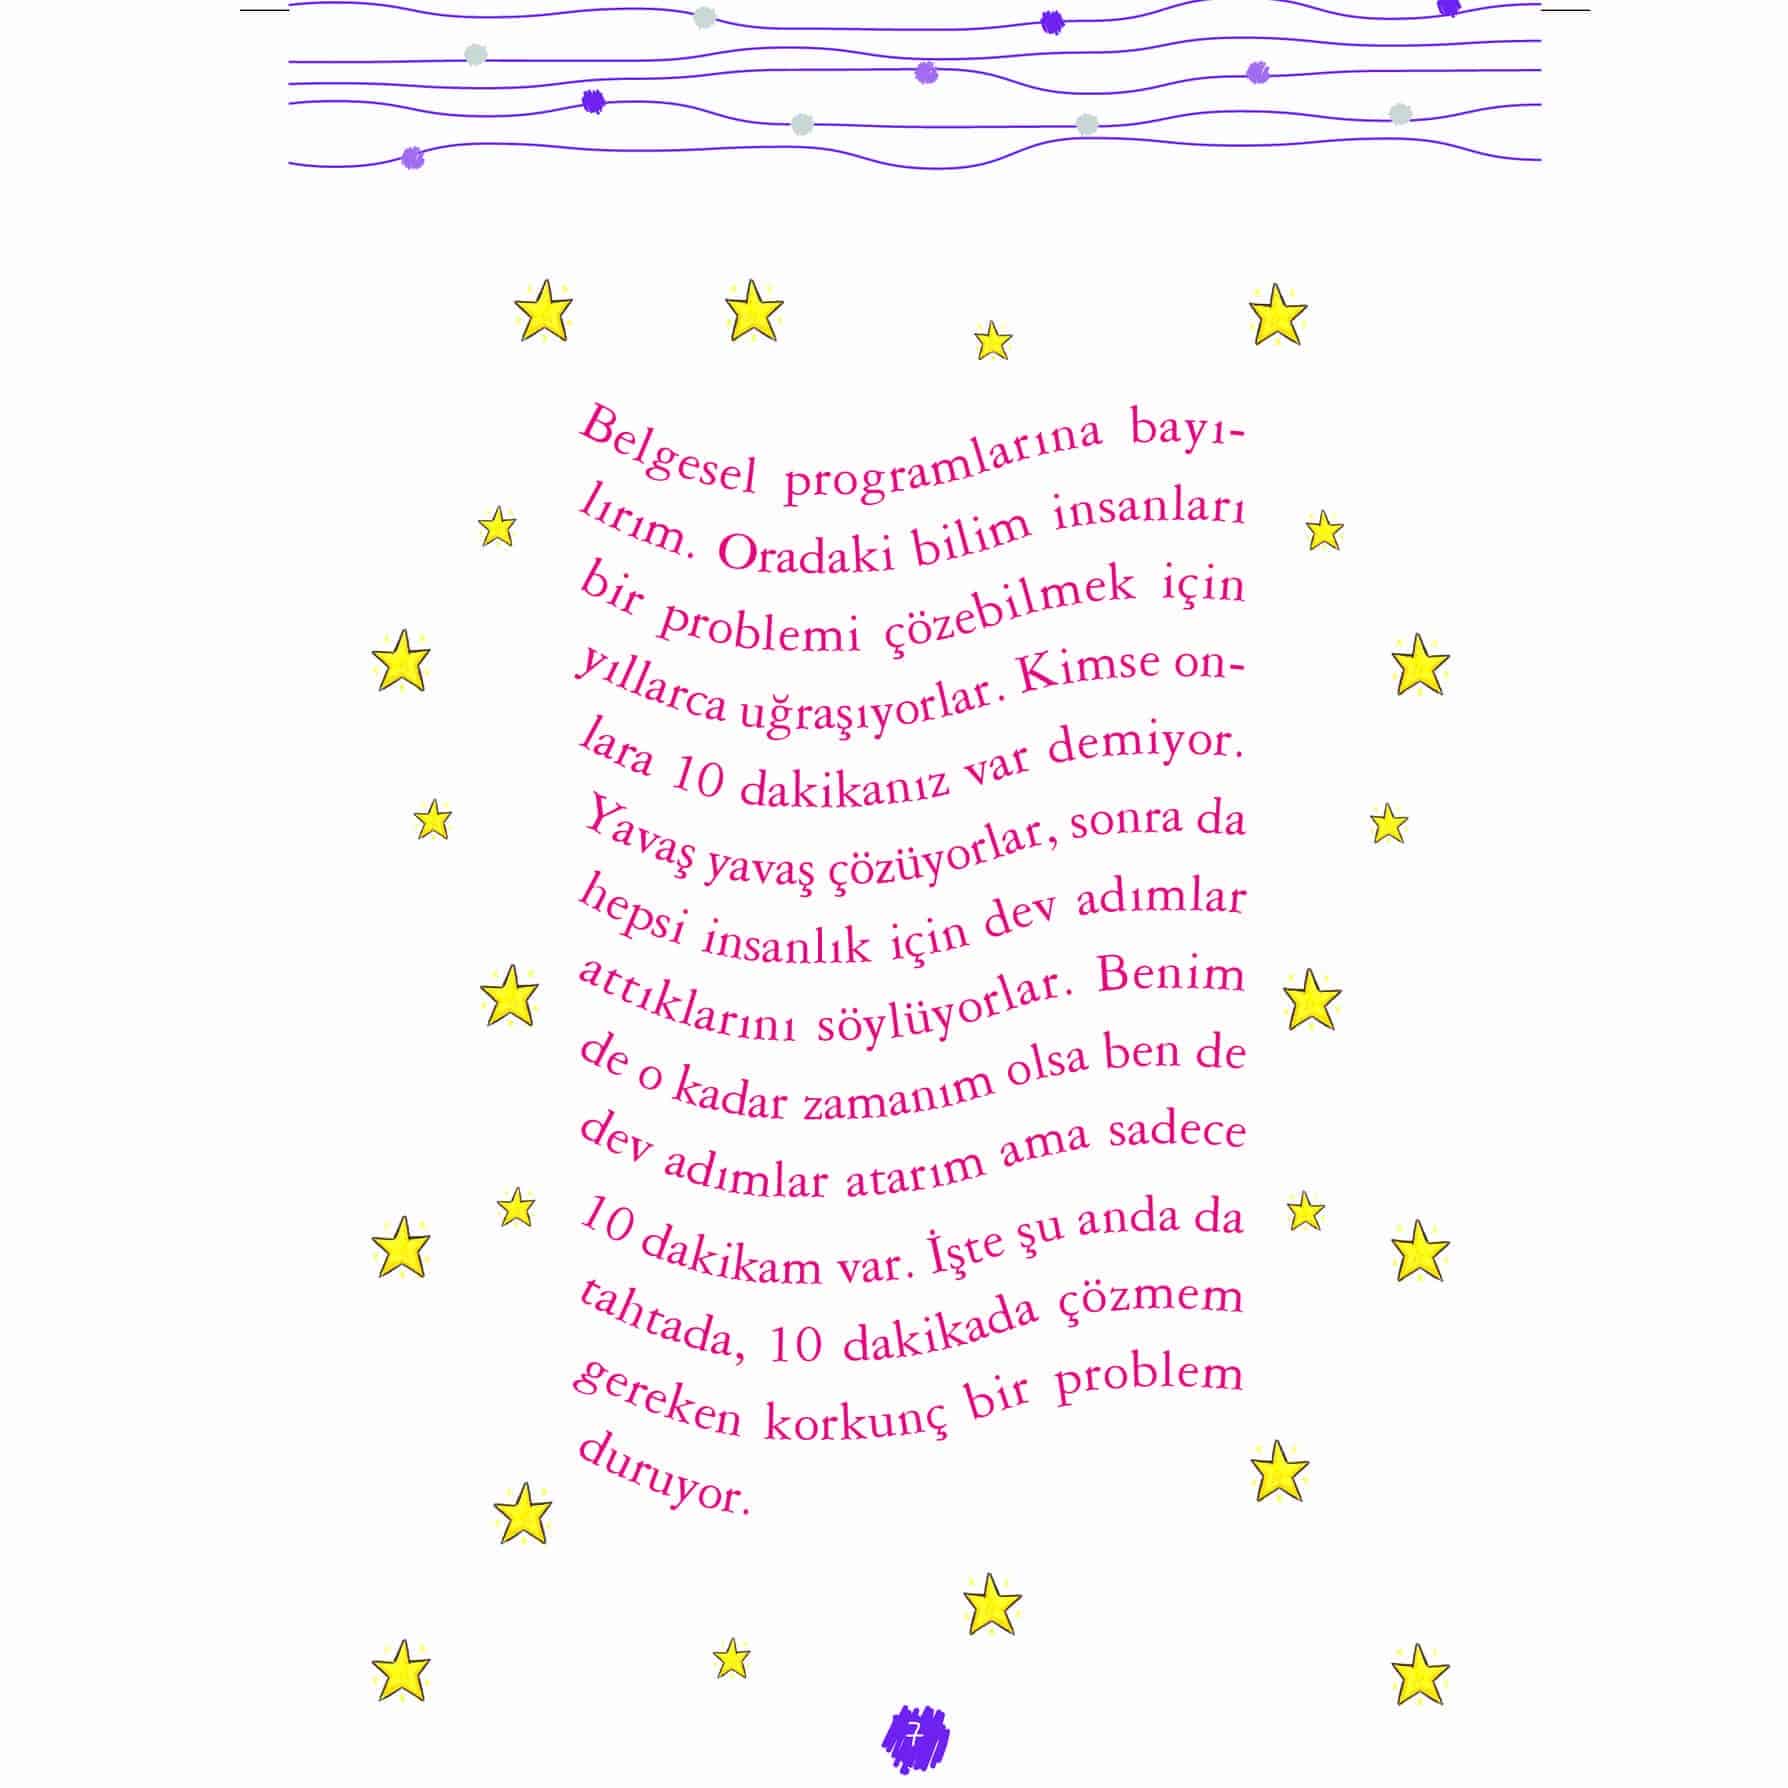 Belgesel programlarına bayı-
lırım. Oradaki bilim insanları
bir problemi çözebilmek için
yıllarca uğraşıyorlar. Kimse on-
lara 10 dakikanız var demiyor.
Yavaş yavaş çözüyorlar, sonra da
hepsi insanlık için dev adımlar
attıklarını söylüyorlar. Benim
de o kadar zamanım olsa ben de
dev adımlar atarım ama sadece
10 dakikam var. İşte şu anda da
tahtada, 10 dakikada çözmem
gereken korkunç bir problem
duruyor.
7